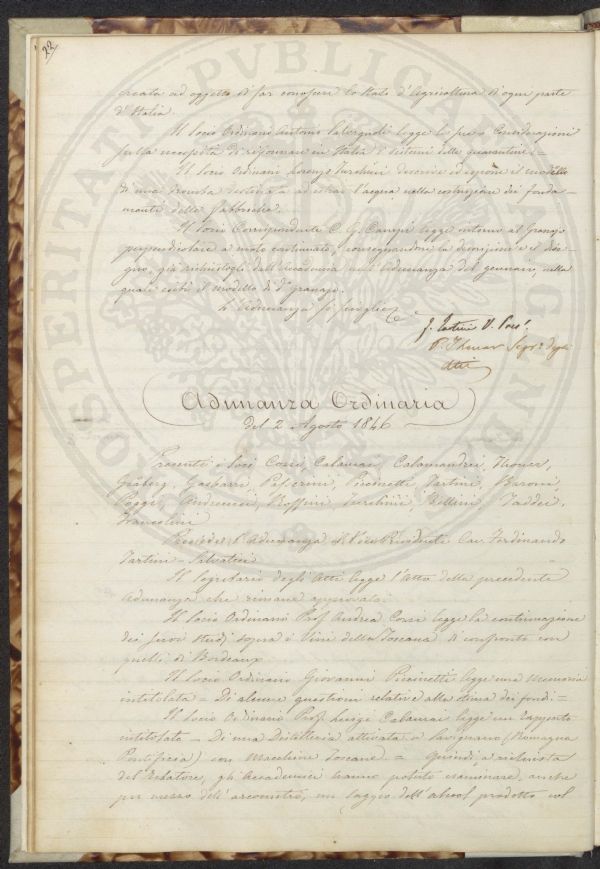 22
creata ad oggetto di far conoscere lo stato d'Agricoltura d'ogni parte
d'Italia.
Il Socio Ordinario Antonio Salvagnoli legge le sue Considerazioni
sulla necessità di riformare in Italia i sistemi delle quarantine. =
Il Socio Ordinario Lorenzo Turchini descrive ed espone il modello
di una tromba destinata ad estrar l'acqua nella costruzione dei fonda-
menti delle fabbriche.
Il Socio Corrispondente C. G. Campi legge intorno al
perpendicolare a moto continuato, consegnandone la descrizione e il dise-
gno, già richiestogli dall'Accademia nell'Adunanza del gennaio, nella
quale esibì il modello di do
L'Adunanza si scioglie
Tartini V. Pres.
P. Thouar Segr. degli
Atti
Adunanza Ordinaria
del 2 Agosto 1846
Presenti i Soci Cozzi, Calamai, Calamandrei, Thouar,
Gråberg, Gazzarri, Pellerini, Piccinetti, Tartini, Baroni,
Poggi, Andreucci, Boffini, Turchini, Bellini, Taddei,
Francolini
Presiede l'Adunanza il Vice Presidente Cav. Ferdinando
Tartini-Salvatici
Il Segretario degli Atti legge l'Atto della precedente
Adunanza che rimane approvato.
Il Socio Ordinario Prof. Andrea Cozzi legge la continuazione
dei suoi studj sopra i Vini della Toscana di confronto con
quelli di Bordeaux.
Il Socio Ordinario Giovanni Piccinetti legge una Memoria
intitolata = Di alcune questioni relative alla stima dei fondi. =
Il Socio Ordinario Prof. Luigi Calamai legge un rapporto
intitolato - Di una Distilleria attivata a Savignano (Romagna
Pontificia) con Macchine Toscane. = Quindi, a richiesta
del Relatore, gli Accademici hanno potuto esaminare, anche
per mezzo dell'areometro, un saggio dell'alcool prodotto col
PROSPERITATI PUBLICAE AUGENDAE